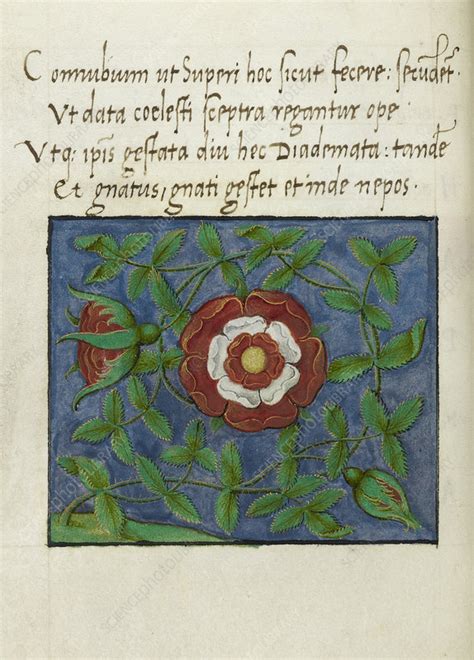 Connubium ut Superi hoc sicut fecere: secūdēt.
Ut data coelesti sceptra regantur ope.
Utq; ip̄is gestata diu hec Diademata: tandē
Et gnatus, gnati gestet et inde nepos.
SCIENCEPHOTOLIBRARY